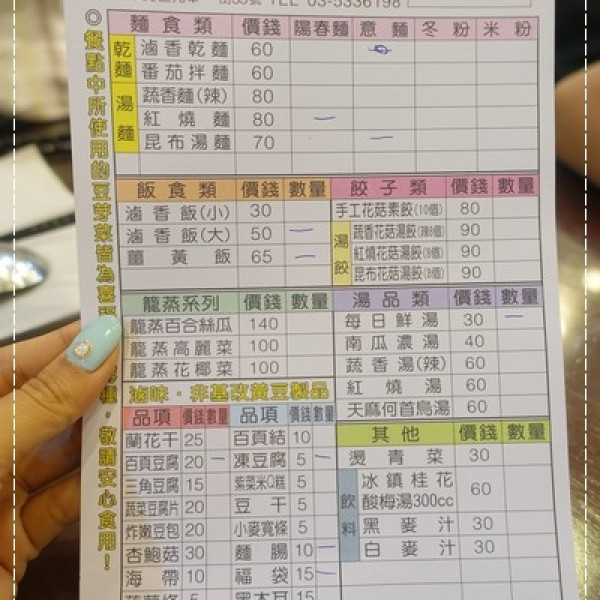 TEL 03-5336198
◎餐點中所使用的豆芽菜皆為臺
種，敬請安心食用！
麵食類 價錢 陽春麵 意麵 冬粉 米粉
乾麵
滷香乾麵 60
番茄拌麵 60
湯麵
蔬香麵(辣) 80
紅燒麵 80
昆布湯麵 70
飯食類 價錢 數量
滷香飯(小) 30
滷香飯(大) 50
薑黃飯 65
餃子類 價錢 數量
手工花菇素餃(10個) 80
湯餃
蔬香花菇湯餃(辣8個) 90
紅燒花菇湯餃(8個) 90
昆布花菇湯餃(8個) 90
籠蒸系列 價錢 數量
籠蒸百合絲瓜 140
籠蒸高麗菜 100
籠蒸花椰菜 100
湯品類 價錢 數量
每日鮮湯 30
南瓜濃湯 40
蔬香湯(辣) 60
紅燒湯 60
天麻何首烏湯 60
滷味·非基改黃豆製品
品項 價錢 數量 品項 價錢 數量
蘭花干 25 百頁結 10
百頁豆腐 20 凍豆腐 5
三角豆腐 15 紫菜米Q糕 5
蔬菜豆腐片 20 豆干 5
炸嫩豆包 20 小麥寬條 5
杏鮑菇 30 麵腸 10
海帶 10 福袋 15
5 黑木耳 15
其他 價錢 數量
燙青菜 30
飲料
冰鎮桂花
酸梅湯300cc 60
黑麥汁 30
白麥汁 30